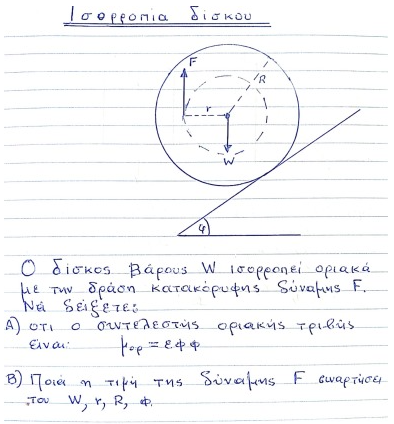 Ισορροπία δίσκου
F
R
r
W
φ
Ο δίσκος βάρους W ισορροπεί οριακά
με την δράση κατακόρυφης δύναμης F.
Νά δείξετε:
Α) οτι ο συντελεστής οριακής τριβής
είναι: μορ = εφφ
Β) Ποιά η τιμή της δύναμης F συναρτήσει
του W, r, R, φ.